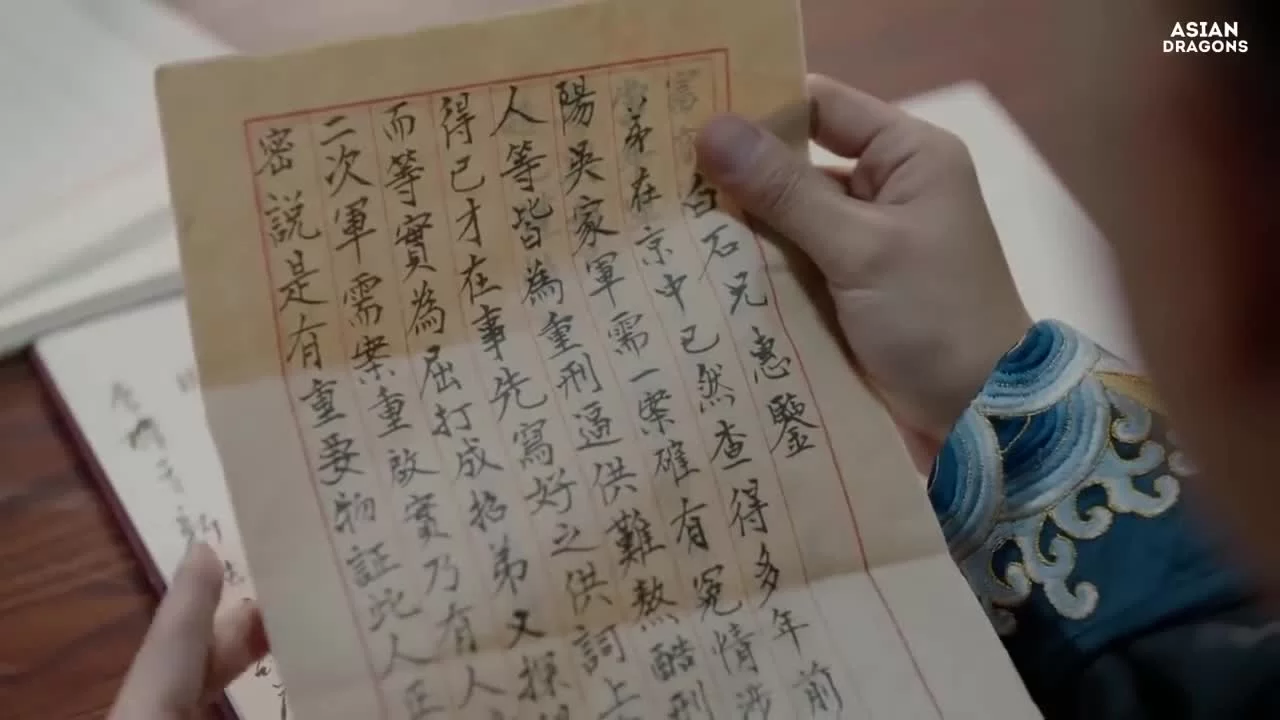 ASIAN
DRAGONS
白石兄惠鑒
弟在京中已然查得多年前
陽吳家軍需一案確有冤情涉
人等皆為重刑逼供難熬酷刑
得已才在事先寫好之供詞上
而等實為屈打成招弟又探
二次軍需案重啟實乃有人
密說是有重要物証此人正